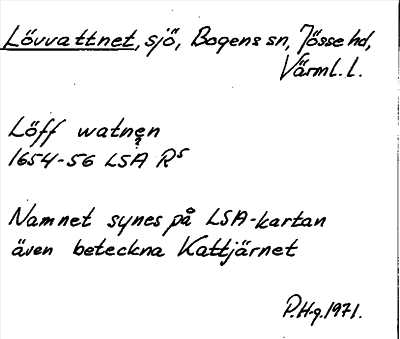 Lövvattnet, sjö, Bogens sn, Jösse hd,
Värml. l.
Löff watnen
1654-56 LSA R5
Namnet synes på LSA-kartan
även beteckna Kattjärnet
P.H-g. 1971.